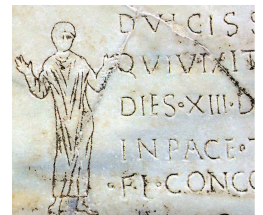 DVLCISS
QVIVIXIT
DIES•XIII•D
INPACE•
•FI•CONCO